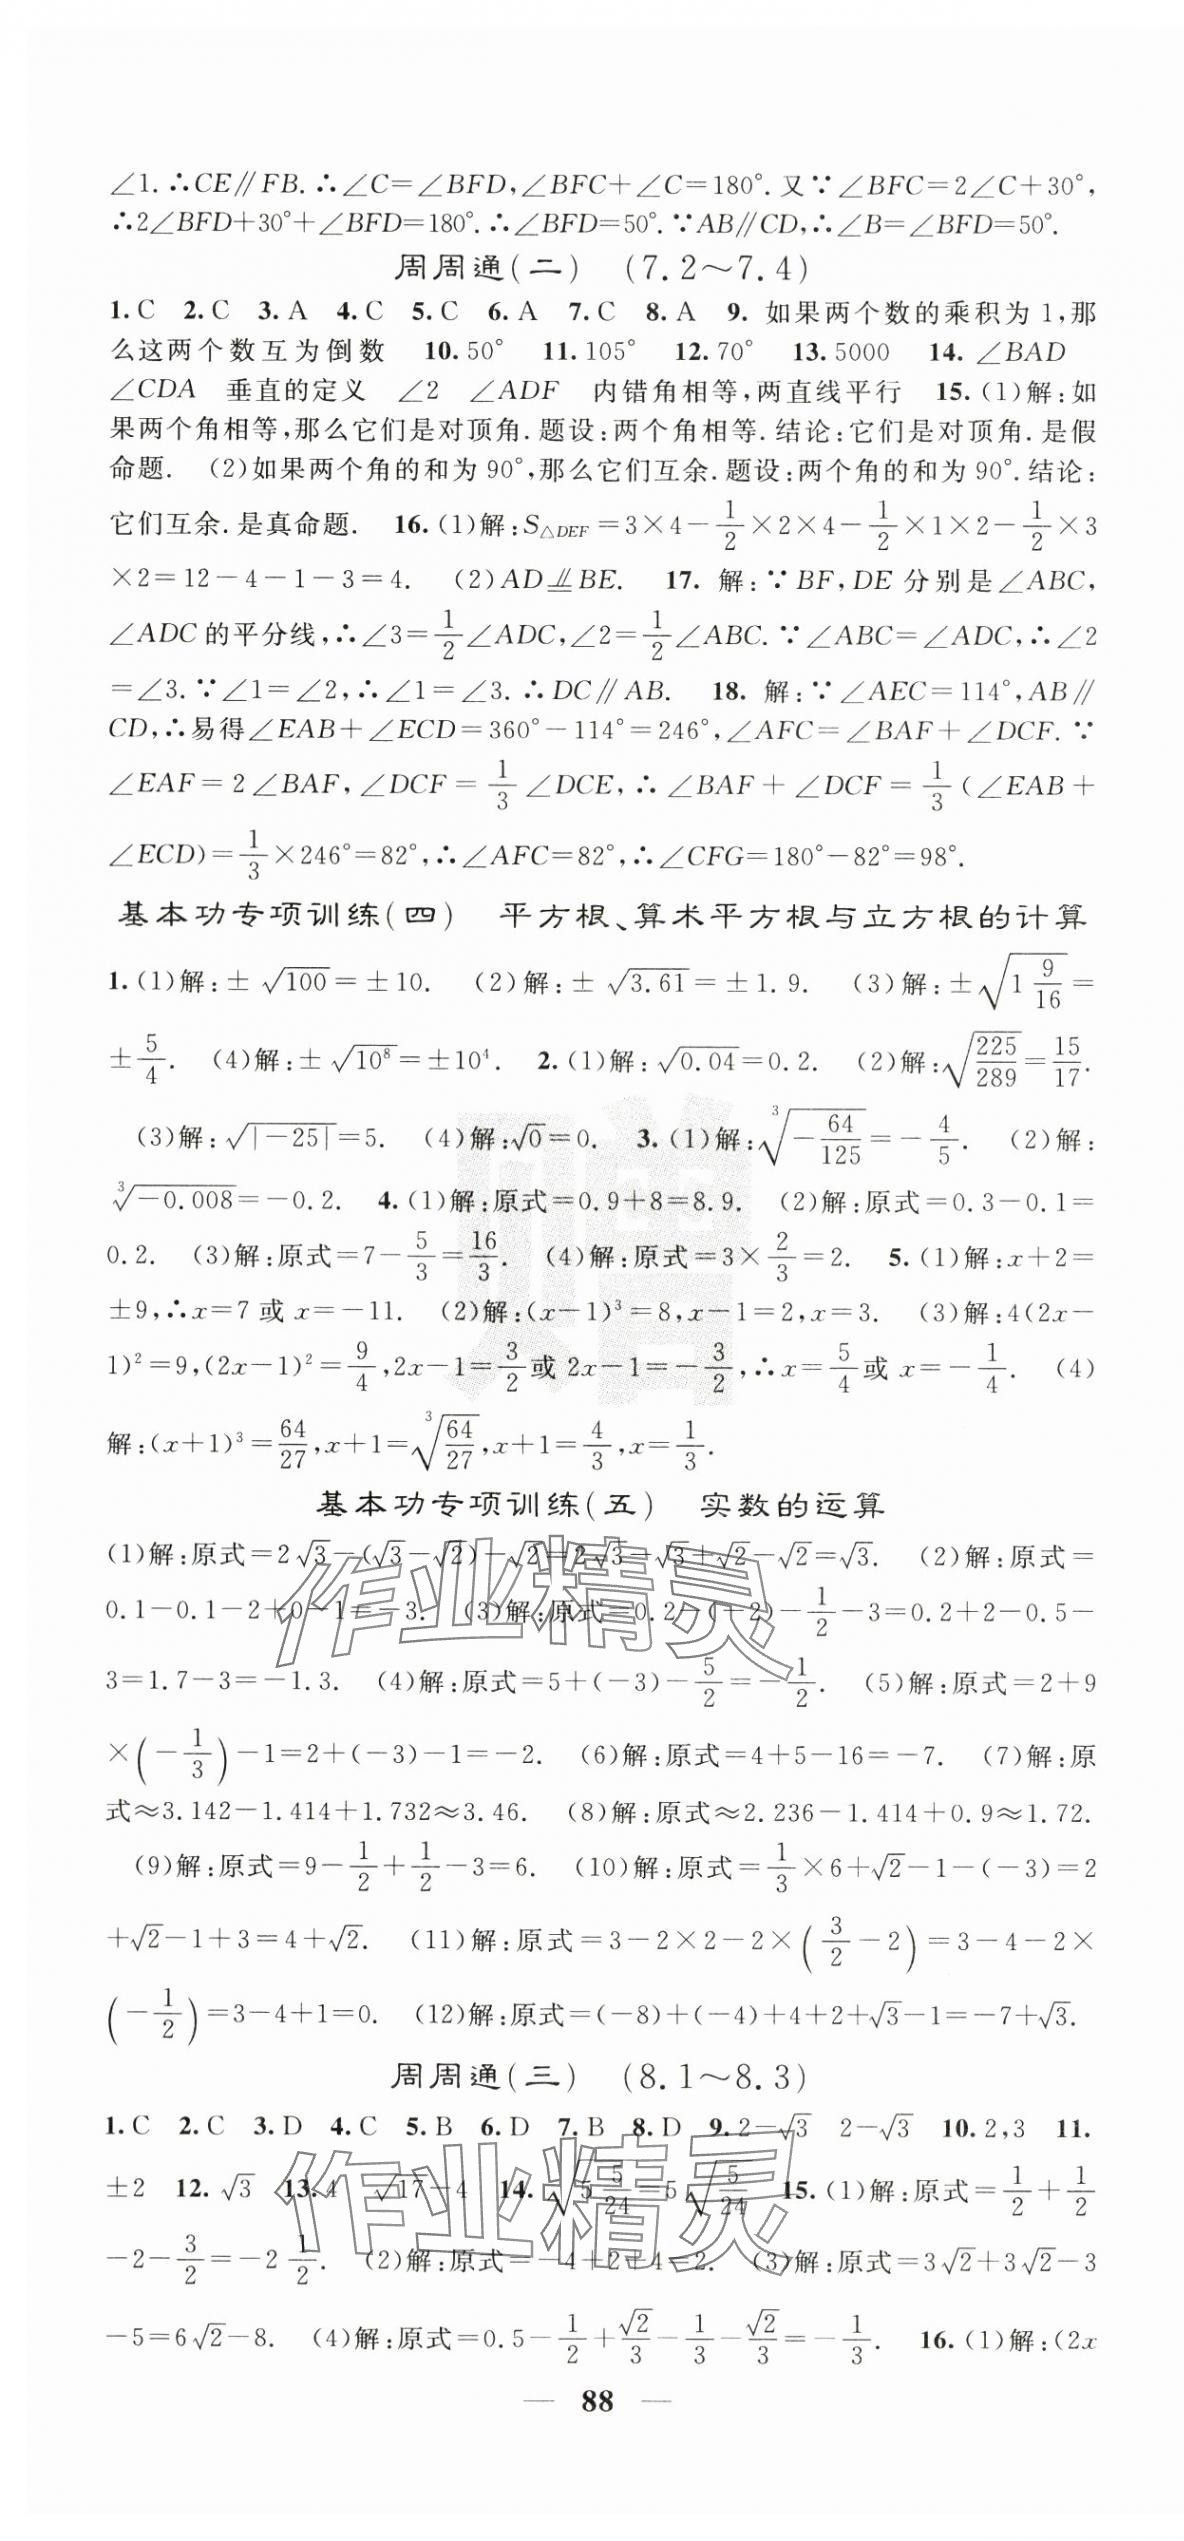 ∠1.∴CE∥FB.∴∠C=∠BFD,∠BFC+∠C=180°.又∵∠BFC=2∠C+30°,
∴2∠BFD+30°+∠BFD=180°.∴∠BFD=50°.∵AB∥CD,∴∠B=∠BFD=50°.
周周通(二) (7.2～7.4)
1.C 2.C 3.A 4.C 5.C 6.A 7.C 8.A 9.如果两个数的乘积为1,那
么这两个数互为倒数 10.50° 11.105° 12.70° 13.5000 14.∠BAD
∠CDA 垂直的定义 ∠2 ∠ADF 内错角相等,两直线平行 15.(1)解:如
果两个角相等,那么它们是对顶角.题设:两个角相等.结论:它们是对顶角.是假
命题. (2)如果两个角的和为90°,那么它们互余.题设:两个角的和为90°.结论:
它们互余.是真命题. 16.(1)解:S△DEF=3×4-1/2×2×4-1/2×1×2-1/2×3
×2=12-4-1-3=4. (2)AD⫫BE. 17.解:∵BF,DE分别是∠ABC,
∠ADC的平分线,∴∠3=1/2∠ADC,∠2=1/2∠ABC.∵∠ABC=∠ADC,∴∠2
=∠3.∵∠1=∠2,∴∠1=∠3.∴DC∥AB. 18.解:∵∠AEC=114°,AB∥
CD,∴易得∠EAB+∠ECD=360°-114°=246°,∠AFC=∠BAF+∠DCF.∵
∠EAF=2∠BAF,∠DCF=1/3∠DCE,∴∠BAF+∠DCF=1/3(∠EAB+
∠ECD)=1/3×246°=82°,∴∠AFC=82°,∴∠CFG=180°-82°=98°.
基本功专项训练(四) 平方根、算术平方根与立方根的计算
1.(1)解:±√100=±10. (2)解:±√3.61=±1.9. (3)解:±√(1 9/16)=
±5/4. (4)解:±√10⁸=±10⁴. 2.(1)解:√0.04=0.2. (2)解:√(225/289)=15/17.
(3)解:√|-25|=5. (4)解:√0=0. 3.(1)解:³√(-64/125)=-4/5. (2)解:
³√-0.008=-0.2. 4.(1)解:原式=0.9+8=8.9. (2)解:原式=0.3-0.1=
0.2. (3)解:原式=7-5/3=16/3. (4)解:原式=3×2/3=2. 5.(1)解:x+2=
±9,∴x=7或x=-11. (2)解:(x-1)³=8,x-1=2,x=3. (3)解:4(2x-
1)²=9,(2x-1)²=9/4,2x-1=3/2或2x-1=-3/2,∴x=5/4或x=-1/4. (4)
解:(x+1)³=64/27,x+1=³√(64/27),x+1=4/3,x=1/3.
基本功专项训练(五) 实数的运算
(1)解:原式=2√3-(√3-√2)-√2=2√3-√3+√2-√2=√3. (2)解:原式=
0.1-0.1-2+0-1=-3. (3)解:原式=0.2-(-2)-1/2-3=0.2+2-0.5-
3=1.7-3=-1.3. (4)解:原式=5+(-3)-5/2=-1/2. (5)解:原式=2+9
×(-1/3)-1=2+(-3)-1=-2. (6)解:原式=4+5-16=-7. (7)解:原
式≈3.142-1.414+1.732≈3.46. (8)解:原式≈2.236-1.414+0.9≈1.72.
(9)解:原式=9-1/2+1/2-3=6. (10)解:原式=1/3×6+√2-1-(-3)=2
+√2-1+3=4+√2. (11)解:原式=3-2×2-2×(3/2-2)=3-4-2×
(-1/2)=3-4+1=0. (12)解:原式=(-8)+(-4)+4+2+√3-1=-7+√3.
周周通(三) (8.1～8.3)
1.C 2.C 3.D 4.C 5.B 6.D 7.B 8.D 9.2-√3 2-√3 10.2,3 11.
±2 12.√3 13.4 √17-4 14.√(5 5/24)=5√(5/24) 15.(1)解:原式=1/2+1/2
-2-3/2=-2 1/2. (2)解:原式=-4+2+4=2. (3)解:原式=3√2+3√2-3
-5=6√2-8. (4)解:原式=0.5-1/2+√2/3-1/3-√2/3=-1/3. 16.(1)解:(2x
— 88 —
作业精灵
作业精灵